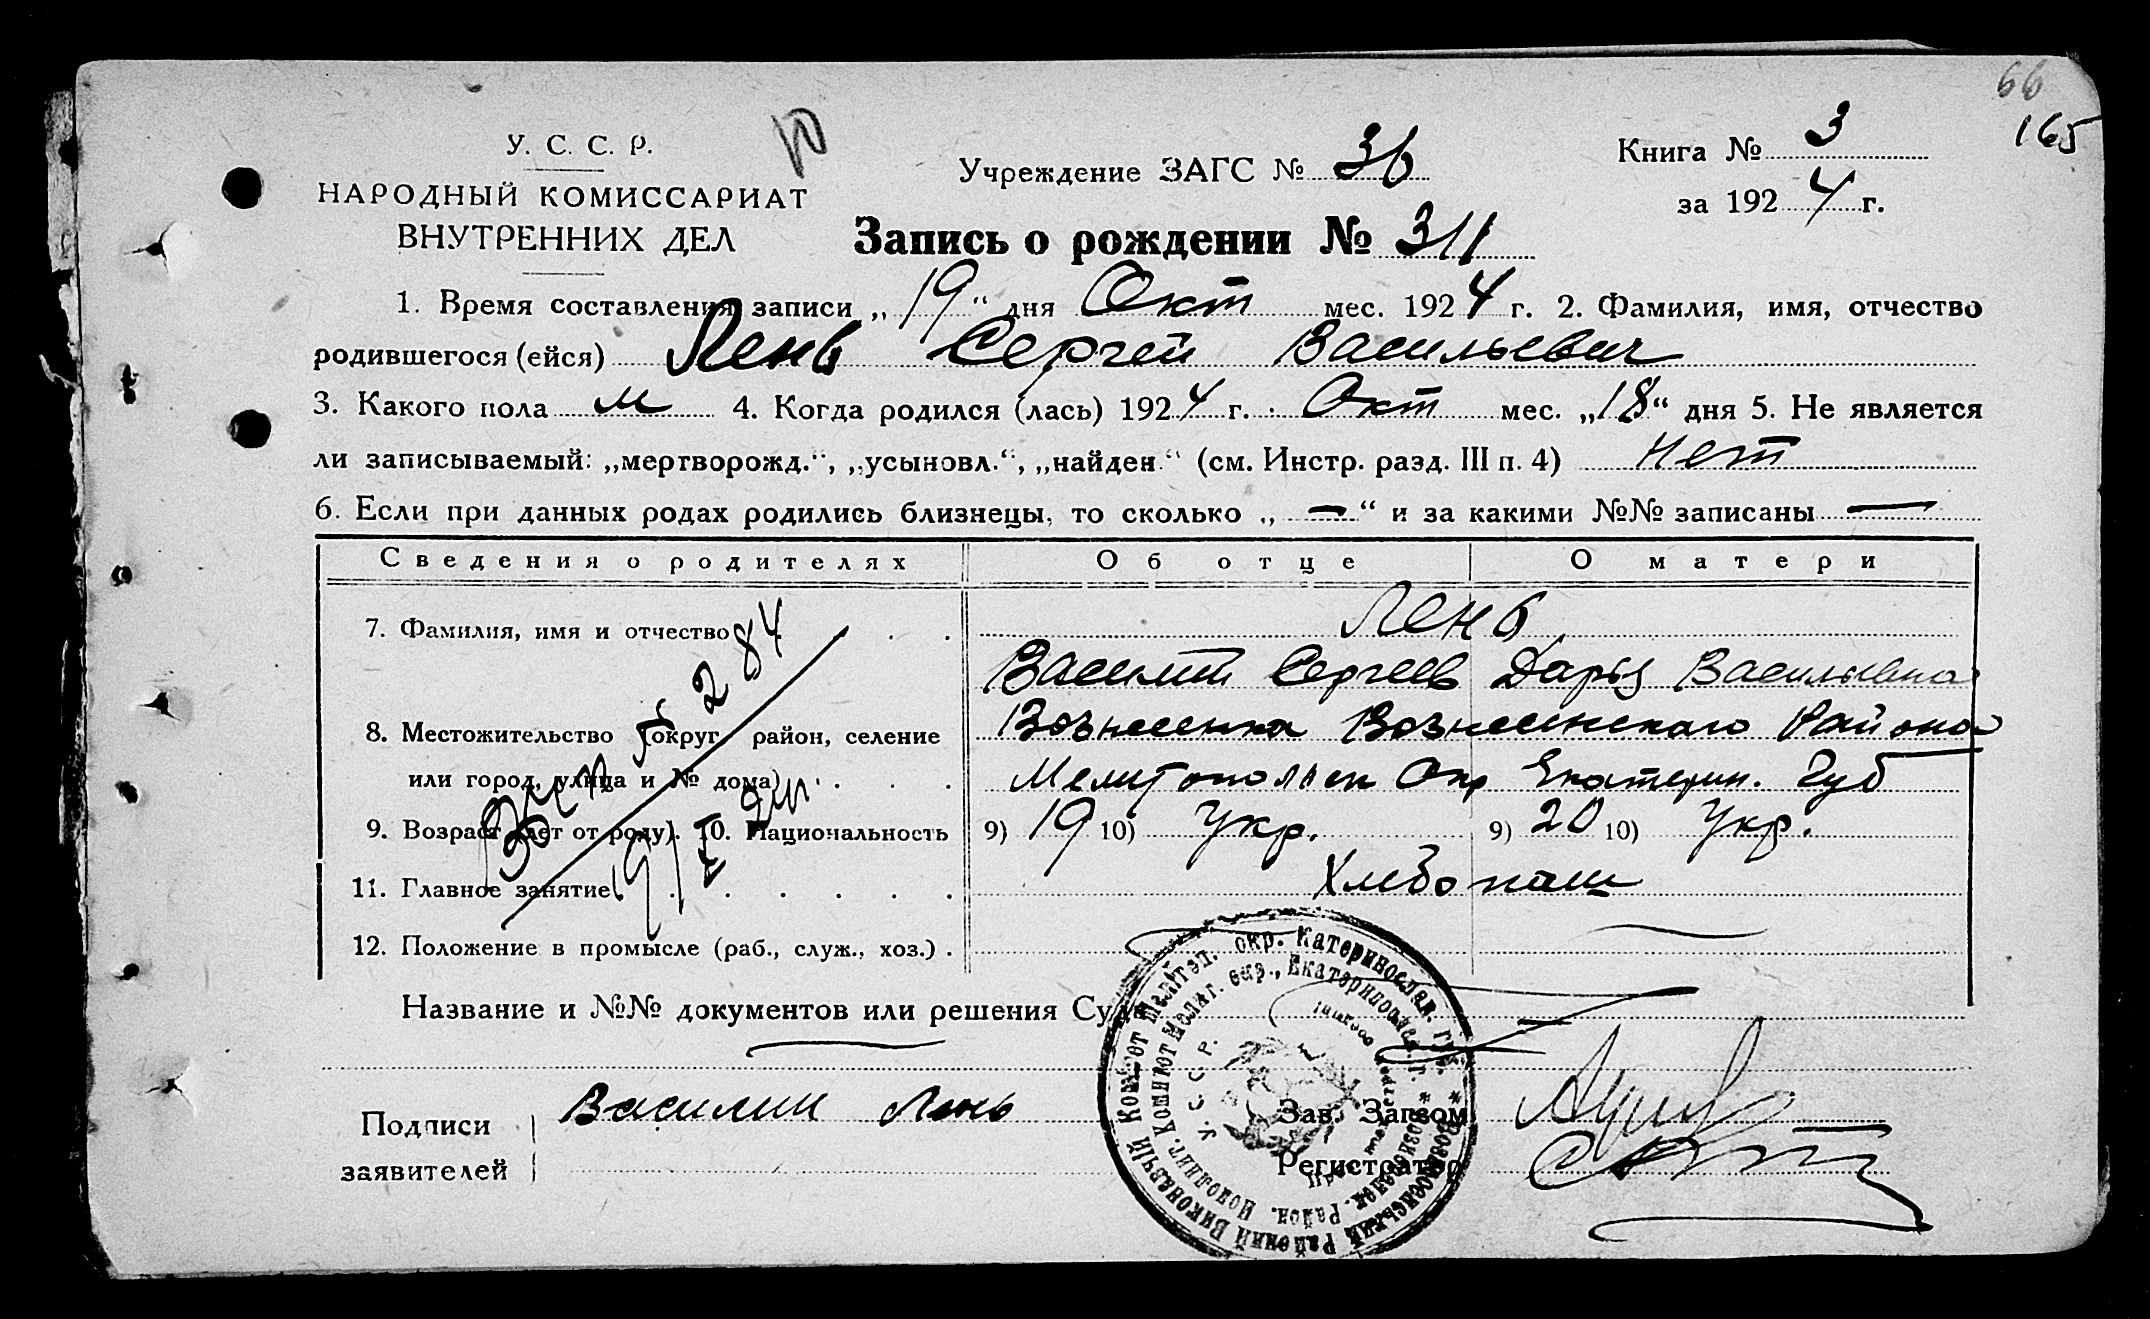 66
165
У. С. С. Р.
НАРОДНЫЙ КОМИССАРИАТ
ВНУТРЕННИХ ДЕЛ
Учреждение ЗАГС № 36
Книга № 3
за 1924 г.
Запись о рождении № 311
1. Время составления записи „19“ дня Окт мес. 1924 г. 2. Фамилия, имя, отчество
родившегося (ейся) Лень Сергей Васильевич
3. Какого пола м 4. Когда родился (лась) 1924 г. Окт мес. „18“ дня 5. Не является
ли записываемый: „мертворожд.“, „усыновл.“, „найден“ (см. Инстр. разд. III п. 4) нет
6. Если при данных родах родились близнецы, то сколько „—“ и за какими №№ записаны —
Сведения о родителях Об отце О матери
7. Фамилия, имя и отчество Лень
Василий Сергеев Дарья Васильевна
8. Местожительство (округ, район, селение Вознесенка Вознесенскаго Района
или город, улица и № дома) Мелитопольск Окр Екатерин. Губ
9. Возраст (лет от роду). 10. Национальность 9) 19 10) Укр. 9) 20 10) Укр.
11. Главное занятие Хлебопаш
12. Положение в промысле (раб., служ., хоз.)
284
Название и №№ документов или решения Суда
Подписи
заявителей
Василий Лень
Зав. Загсом
Регистратор
Вознесенський Районий Виконавчий Комитет Мелітоп. окр. Катеринослав. губ.
Вознесенск. Район. Исполнит. Комитет Мелит. окр., Екатеринослав. г.
У. С. С. Р.